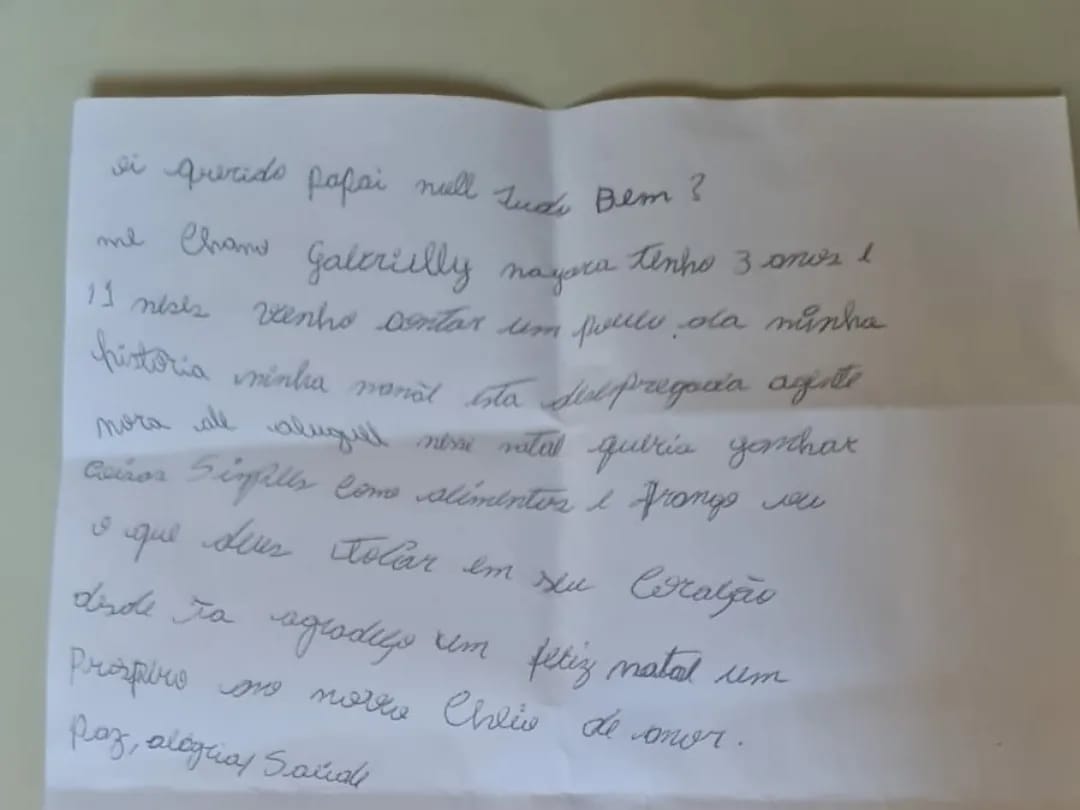 oi querido papai noell tudo Bem?
me chamo Gabrielly nayara tenho 3 anos e
11 meses venho contar um pouco da minha
história minha mamãe esta desepregada agente
mora de aluguel nesse natal queria ganhar
coisas Simples como alimentos e frango ou
o que deus tocar em seu Coração
desde ja agradeço um feliz natal um
Prospero ano novo Cheio de amor.
Paz, alegria, Saúde